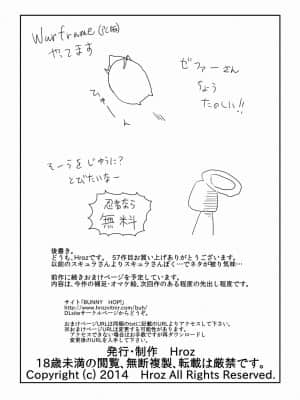 Warframe(PC版)
やってます
ゼファーさん
ちょう
たのしい!!
ひゅーん
そーらをじゆうに?
とびたいなー
忍者なら
無料
後書き。
どうも、Hrozです。 57作目お買い上げありがとうございます。
以前のスキュラさんよりスキュラさんぽく…でネタが被り気味…
前作に続きおまけページを予定しています。
内容は、今作の補足・オマケ絵、次回作のある程度の先出し程度です。
サイト「BUNNY HOP!」
DLsiteサークルページからどうぞ。
おまけページURLは同梱のtxtに記載のURLよりアクセスして下さい。
尚おまけページURLは変更する可能性があります。
アクセスできない場合はお手数ですが再ダウンロードし
変更後のURLを入手して下さい。
発行・制作 Hroz
18歳未満の閲覧、無断複製、転載は厳禁です。
Copyright (c) 2014 Hroz All Rights Reserved.